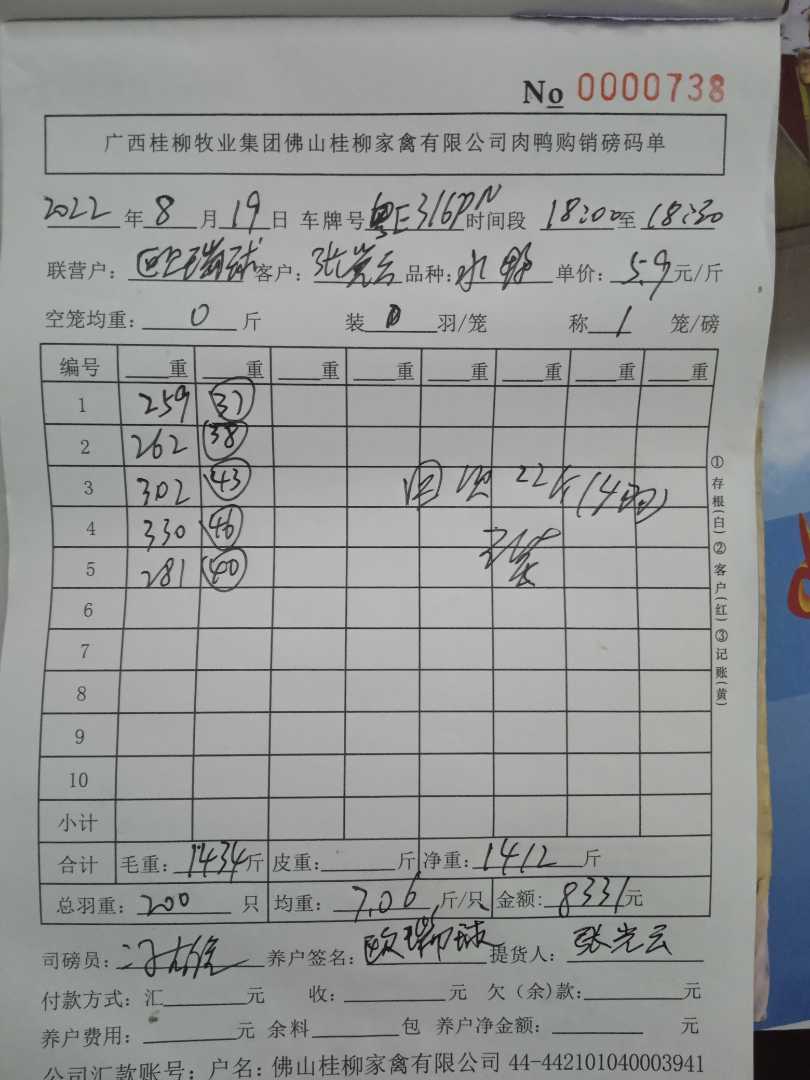 No 0000738
广西桂柳牧业集团佛山桂柳家禽有限公司肉鸭购销磅码单
2022年8月19日 车牌号粤E316PN时间段 18:00至18:30
联营户：欧瑞球 客户：张光云 品种：水鸭 单价：5.9元/斤
空笼均重：0斤 装0羽/笼 称1笼/磅
编号 重 重 重 重 重 重 重 重
1 259 37
2 262 38
3 302 43 22斤(4羽)
4 330 46
5 281 40
6
7
8
9
10
小计
合计 毛重：1434斤 皮重：斤 净重：1412斤
总羽重：200只 均重：7.06斤/只 金额：8331元
司磅员： 养户签名：欧瑞球 提货人：张光云
付款方式：汇元 收：元 欠（余）款：元
养户费用：元 余料包 养户净金额：元
公司汇款账号：户名：佛山桂柳家禽有限公司 44-442101040003941
①存根(白)②客户(红)③记账(黄)